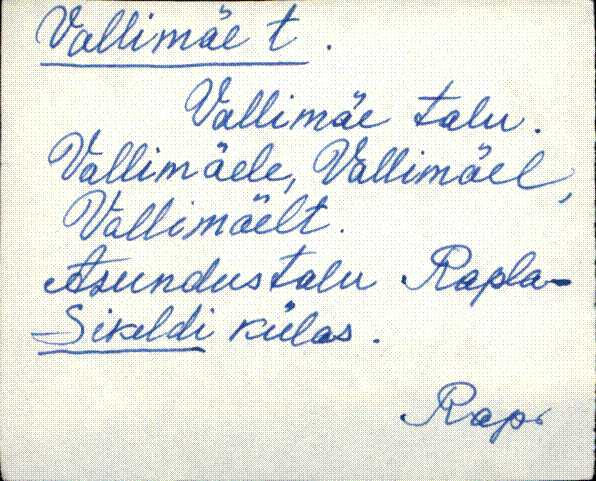 Vallimäe t.
Vallimäe talu.
Vallimäele, Vallimäel,
Vallimäelt.
Asundustalu Rapla-
Sikeldi külas.
Rap.